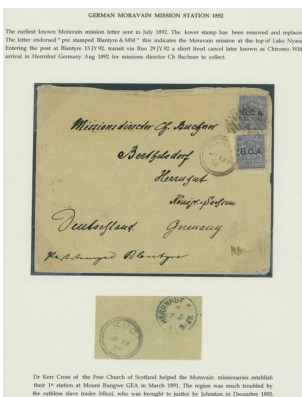 GERMAN MORAVAIN MISSION STATION 1892
The earliest known Moravain mission letter sent in July 1892. The lower stamp has been removed and replace
The letter endorsed " pre stamped Blantyre & MM " this indicates the Moravain mission at the top of Lake Nyasa
Entering the post at Blantyre 13 JY 92, transit via Ruo 29 JY 92 a short lived cancel later known as Chiromo With
arrival in Herrnhut Germany Aug 1892 for missions director Ch Buchner to collect.
B.C.A.
B.C.A.
Missionsdirector Ch. Buchner
Berthelsdorf
Herrnhut
Königr. Sachsen
Deutschland Germany
Blantyre
HERRNHUT
Dr Kerr Cross of the Free Church of Scotland helped the Moravain missionaries establish
their 1st station at Mount Rungwe GEA in March 1891. The region was much troubled by
the ruthless slave trader Mlozi, who was brought to justice by Johnston in December 1895.